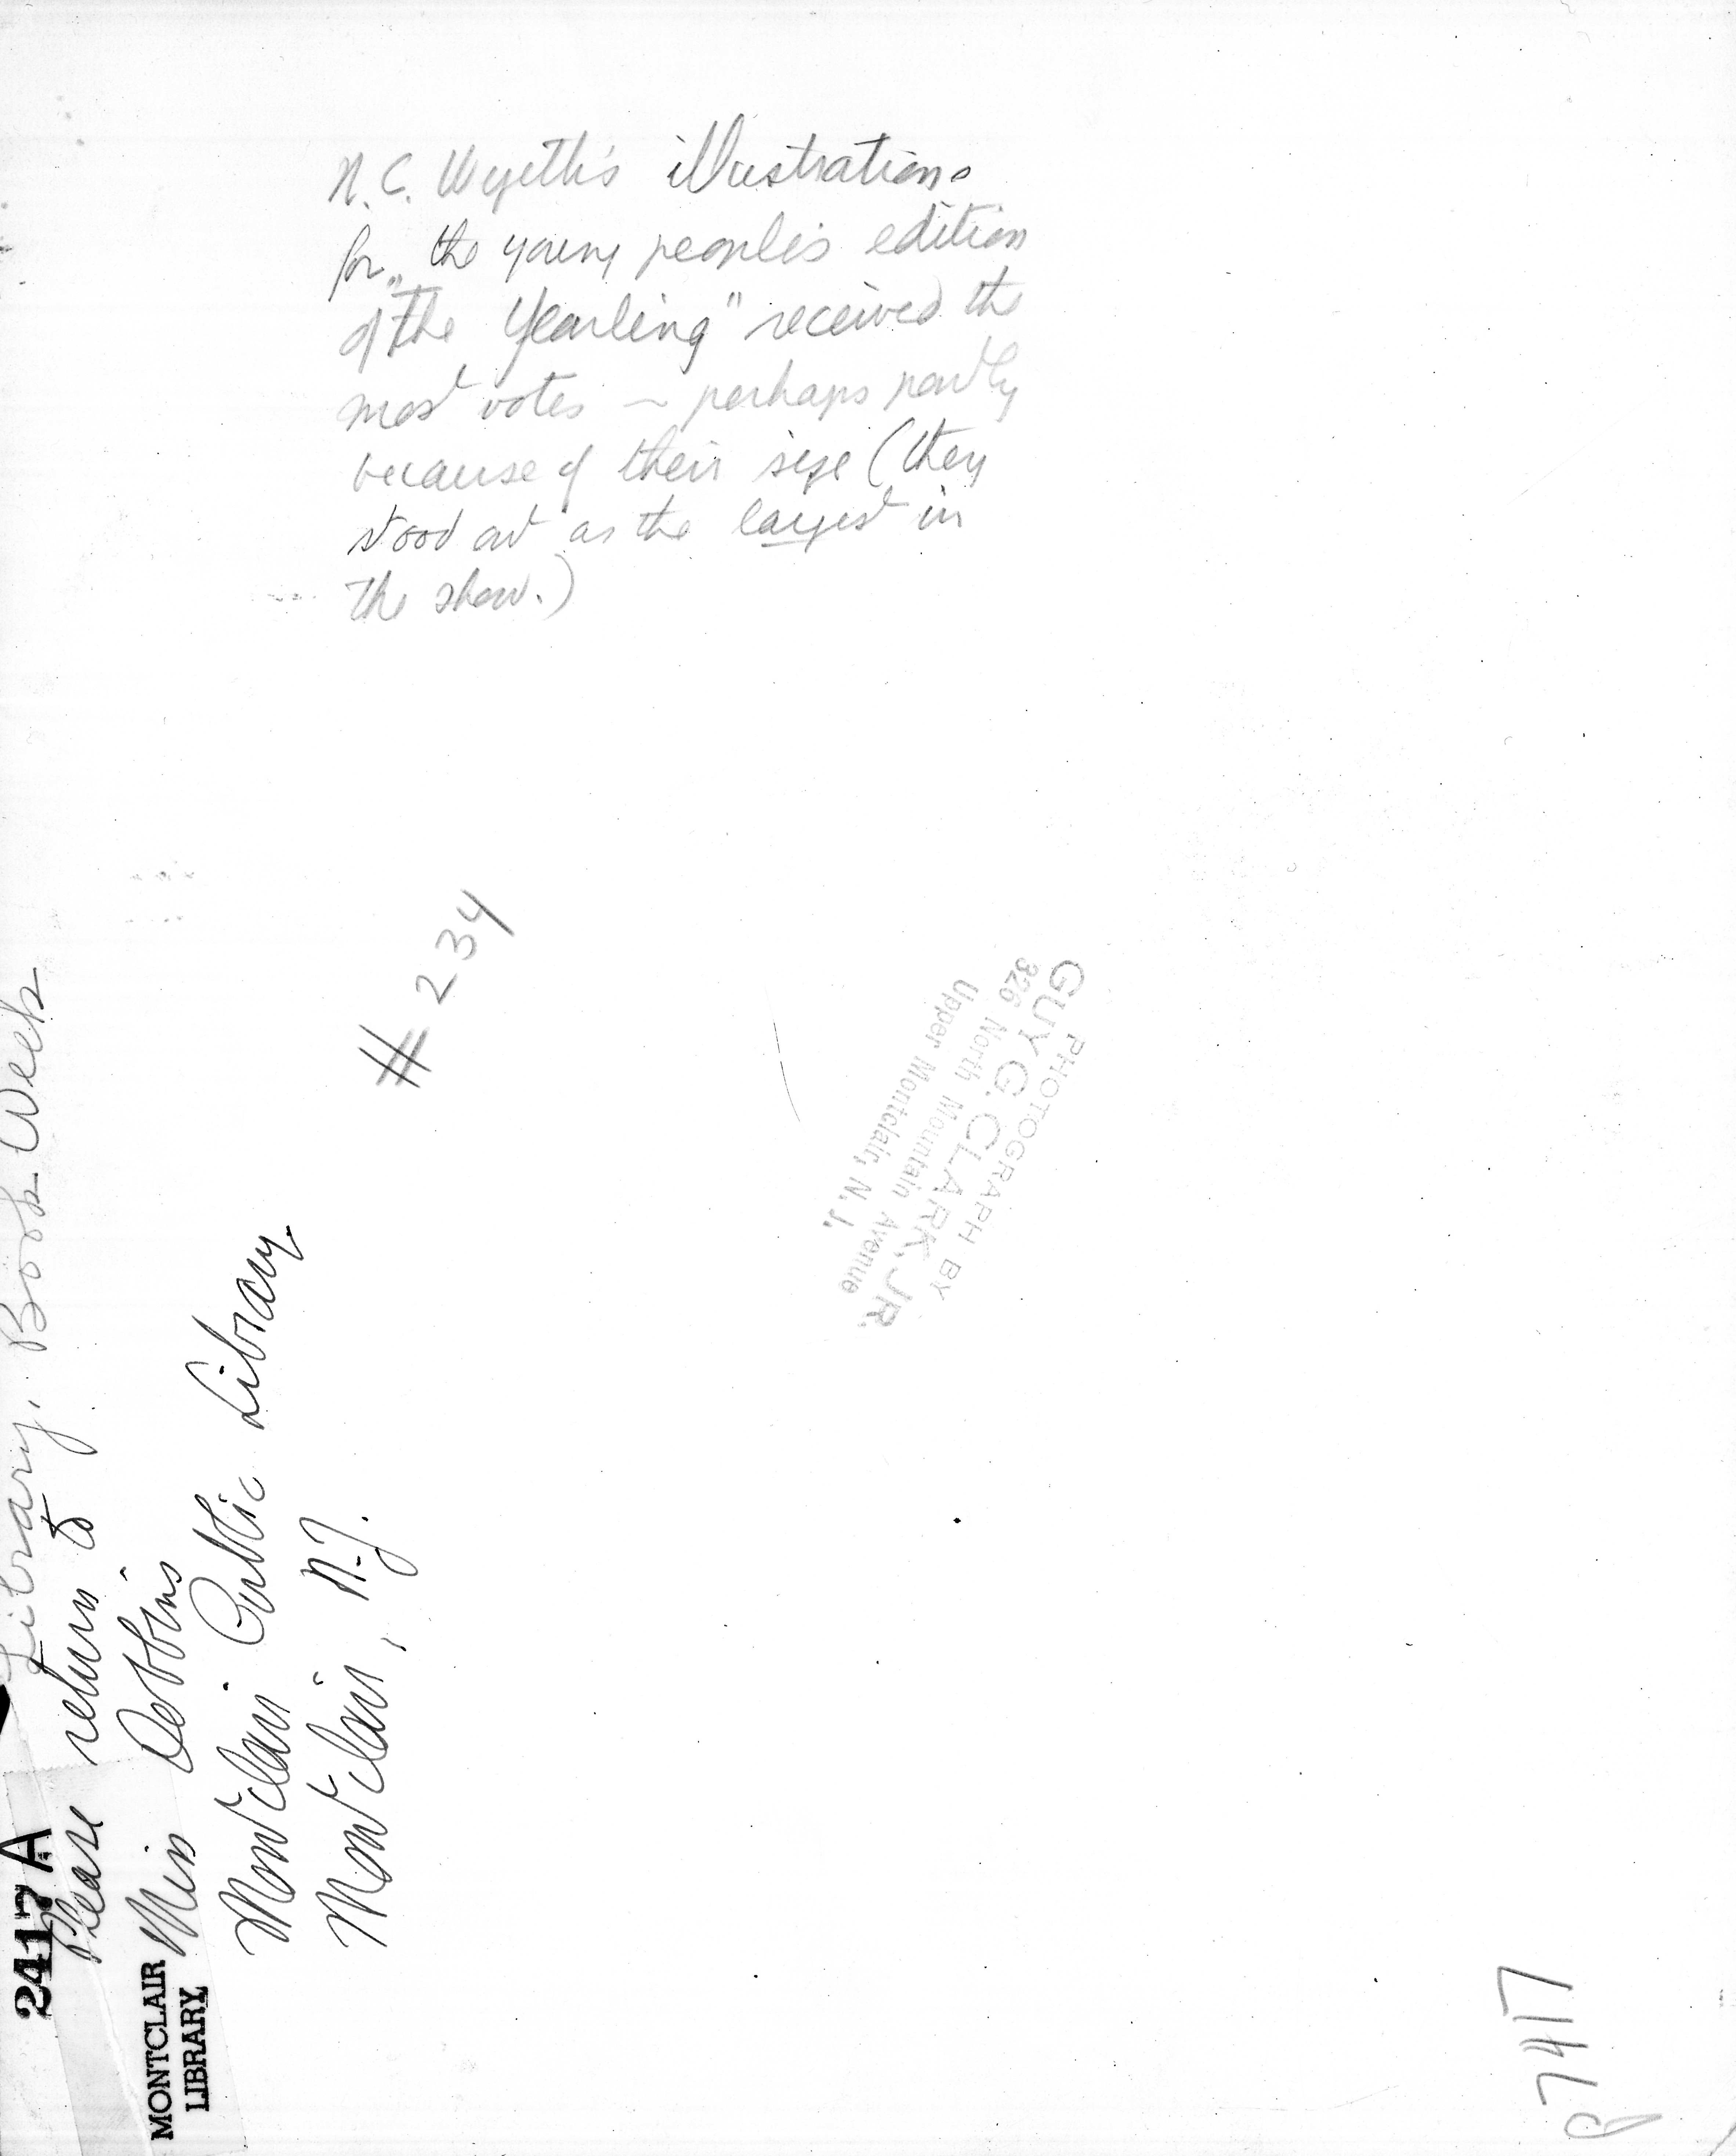 N.C. Wyeth's illustrations
for the young people's edition
of "The Yearling" received the
most votes — perhaps partly
because of their size (they
stood out as the largest in
the show.)
# 234
PHOTOGRAPH BY
GUY G. CLARK, JR.
326 North Mountain Avenue
Upper Montclair, N. J.
Library. Book Week
Please return to
Miss Dobbins
Montclair Public Library.
Montclair, N.J.
2417 A
MONTCLAIR
LIBRARY